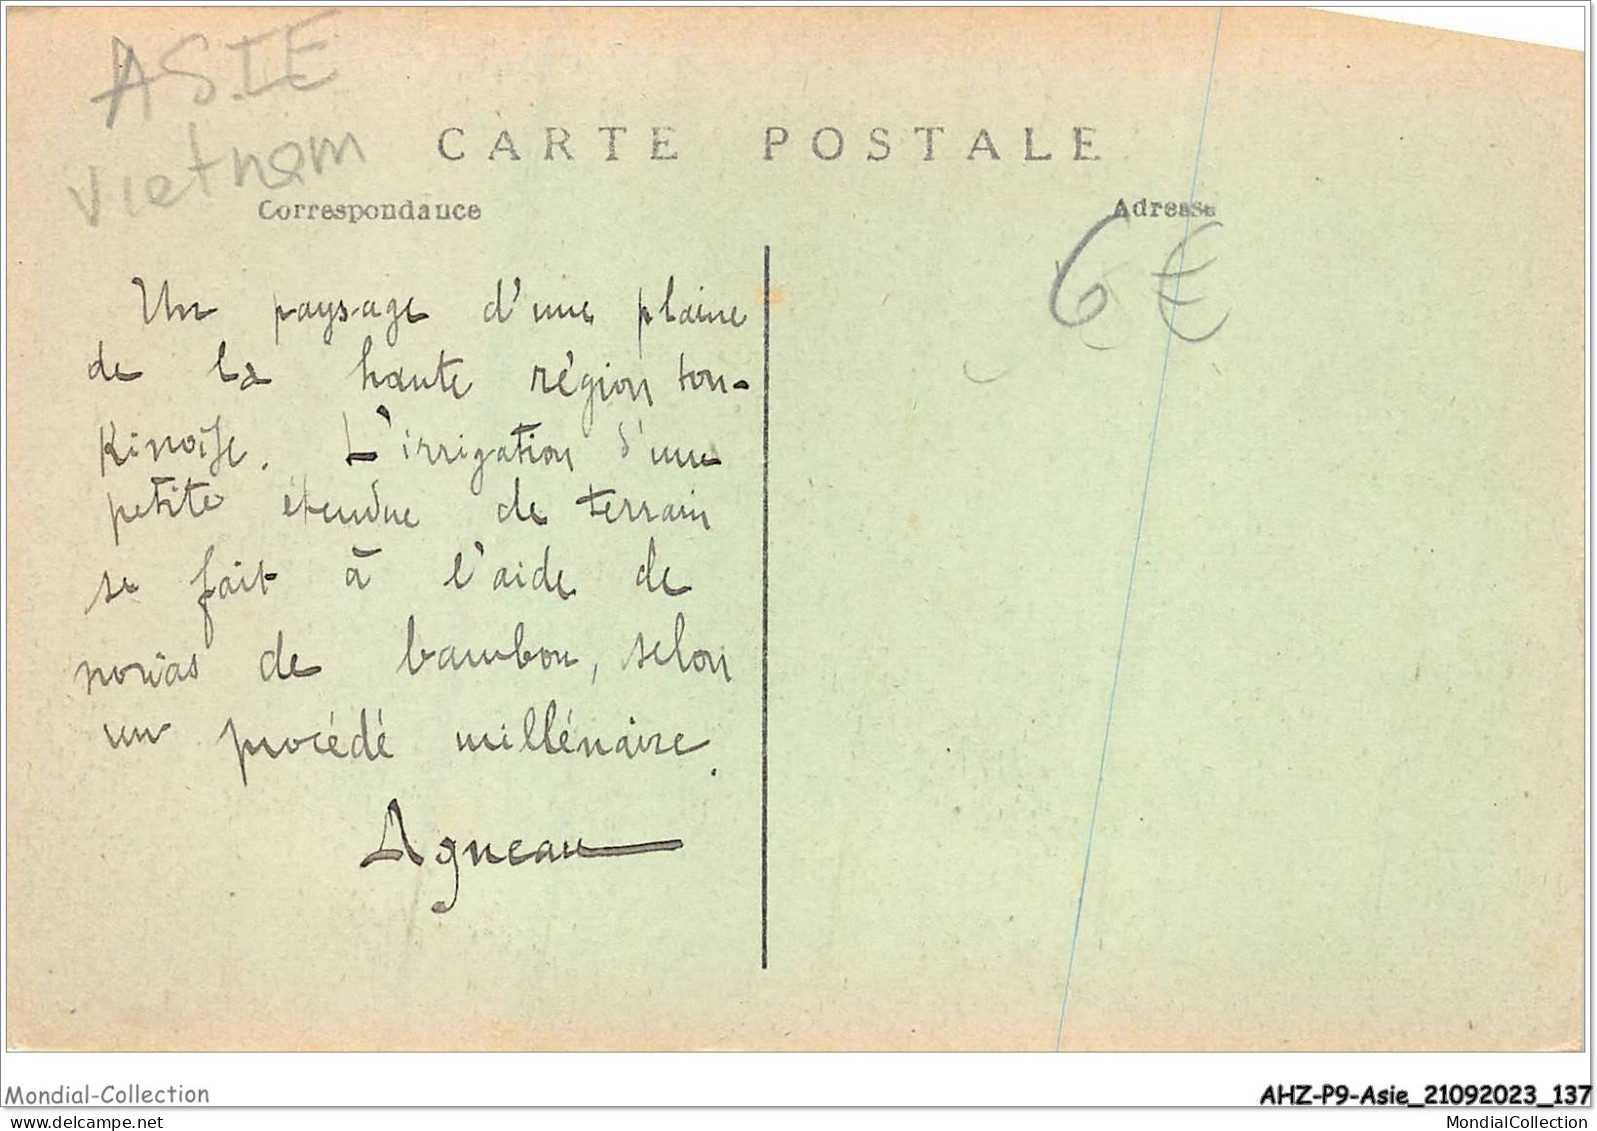 ASIE
Vietnam
CARTE POSTALE
Correspondance
Adresse
6€
Un paysage d'une plaine
de la haute région ton-
kinoise. L'irrigation d'une
petite étendue de terrain
se fait à l'aide de
norias de bambou, selon
un procédé millénaire.
Agneau
Mondial-Collection
AHZ-P9-Asie_21092023_137
www.delcampe.net
MondialCollection